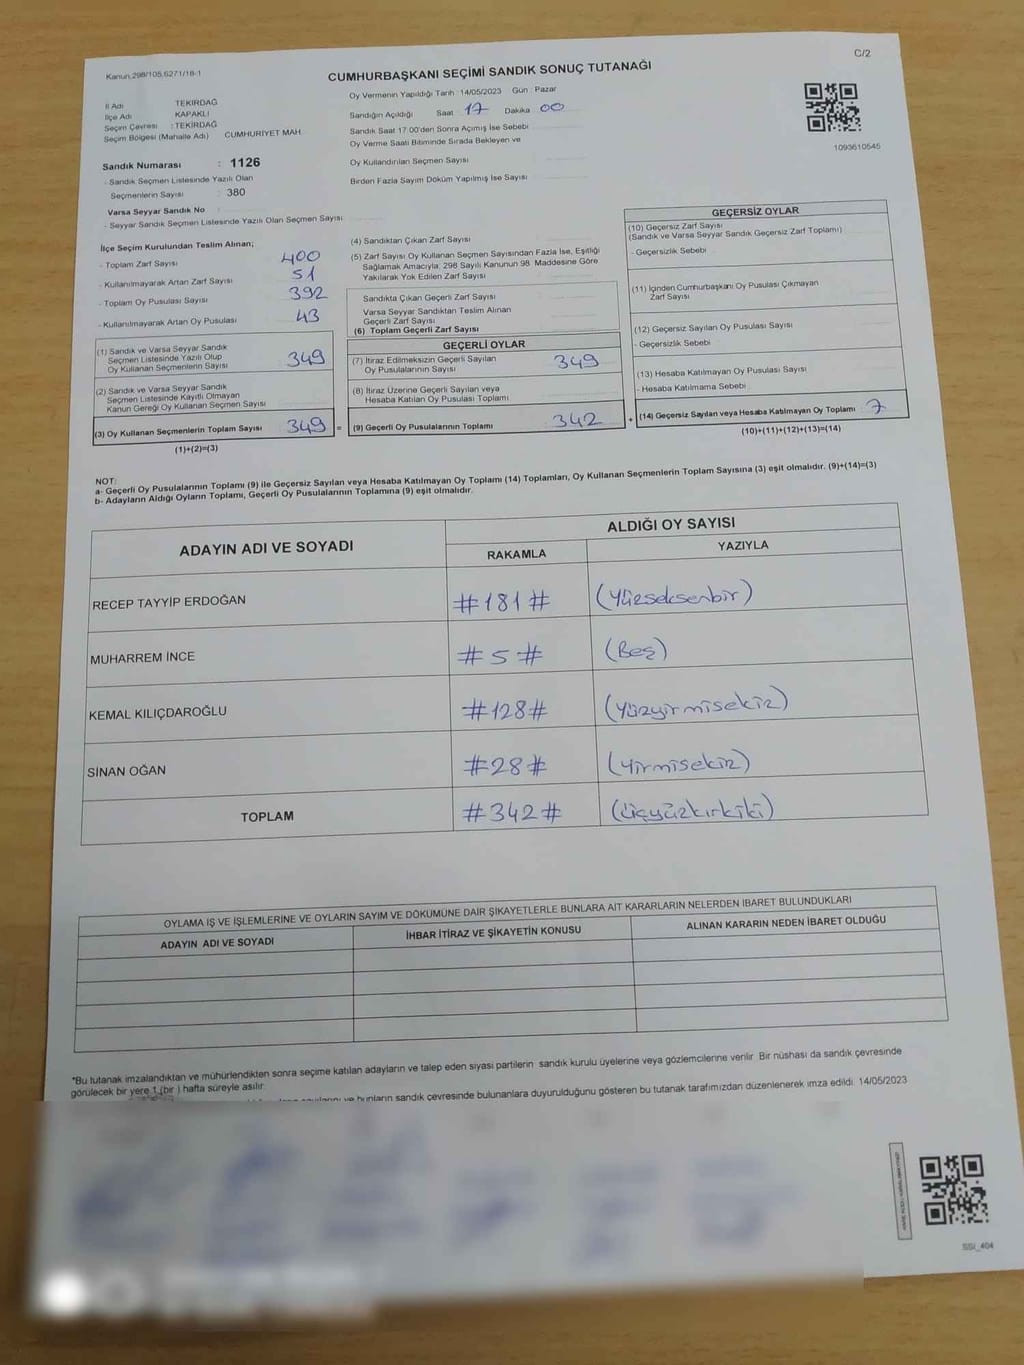 Kanun,298/105,6271/18-1
CUMHURBAŞKANI SEÇİMİ SANDIK SONUÇ TUTANAĞI
C/2
İl Adı TEKİRDAĞ
İlçe Adı KAPAKLI
Seçim Çevresi : TEKİRDAĞ
Seçim Bölgesi (Mahalle Adı) CUMHURİYET MAH.
Sandık Numarası : 1126
- Sandık Seçmen Listesinde Yazılı Olan
Seçmenlerin Sayısı : 380
Varsa Seyyar Sandık No :
- Seyyar Sandık Seçmen Listesinde Yazılı Olan Seçmen Sayısı
Oy Vermenin Yapıldığı Tarih : 14/05/2023 Gün : Pazar
Sandığın Açıldığı Saat 17 Dakika 00
Sandık Saat 17.00'den Sonra Açmış İse Sebebi
Oy Verme Saati Bitiminde Sırada Bekleyen ve
Oy Kullandırılan Seçmen Sayısı
Birden Fazla Sayım Döküm Yapılmış İse Sayısı
1093610545
İlçe Seçim Kurulundan Teslim Alınan;
- Toplam Zarf Sayısı 400
- Kullanılmayarak Artan Zarf Sayısı 51
- Toplam Oy Pusulası Sayısı 392
- Kullanılmayarak Artan Oy Pusulası 43
(1) Sandık ve Varsa Seyyar Sandık
Seçmen Listesinde Yazılı Olup
Oy Kullanan Seçmenlerin Sayısı 349
(2) Sandık ve Varsa Seyyar Sandık
Seçmen Listesinde Kayıtlı Olmayan
Kanun Gereği Oy Kullanan Seçmen Sayısı
(3) Oy Kullanan Seçmenlerin Toplam Sayısı 349 =
(1)+(2)=(3)
(4) Sandıktan Çıkan Zarf Sayısı
(5) Zarf Sayısı Oy Kullanan Seçmen Sayısından Fazla İse, Eşitliği
Sağlamak Amacıyla, 298 Sayılı Kanunun 98. Maddesine Göre
Yakılarak Yok Edilen Zarf Sayısı
Sandıkta Çıkan Geçerli Zarf Sayısı
Varsa Seyyar Sandıktan Teslim Alınan
Geçerli Zarf Sayısı
(6) Toplam Geçerli Zarf Sayısı
GEÇERLİ OYLAR
(7) İtiraz Edilmeksizin Geçerli Sayılan
Oy Pusulasının Sayısı 349
(8) İtiraz Üzerine Geçerli Sayılan veya
Hesaba Katılan Oy Pusulası Toplamı
(9) Geçerli Oy Pusulalarının Toplamı 342 +
GEÇERSİZ OYLAR
(10) Geçersiz Zarf Sayısı
(Sandık ve Varsa Seyyar Sandık Geçersiz Zarf Toplamı)
- Geçersizlik Sebebi
(11) İçinden Cumhurbaşkanı Oy Pusulası Çıkmayan
Zarf Sayısı
(12) Geçersiz Sayılan Oy Pusulası Sayısı
- Geçersizlik Sebebi
(13) Hesaba Katılmayan Oy Pusulası Sayısı
- Hesaba Katılmama Sebebi
(14) Geçersiz Sayılan veya Hesaba Katılmayan Oy Toplamı 7
(10)+(11)+(12)+(13)=(14)
NOT:
a- Geçerli Oy Pusulalarının Toplamı (9) ile Geçersiz Sayılan veya Hesaba Katılmayan Oy Toplamı (14) Toplamları, Oy Kullanan Seçmenlerin Toplam Sayısına (3) eşit olmalıdır. (9)+(14)=(3)
b- Adayların Aldığı Oyların Toplamı, Geçerli Oy Pusulalarının Toplamına (9) eşit olmalıdır.
ADAYIN ADI VE SOYADI
ALDIĞI OY SAYISI
RAKAMLA YAZIYLA
RECEP TAYYİP ERDOĞAN #181# (Yüzseksenbir)
MUHARREM İNCE #5# (Beş)
KEMAL KILIÇDAROĞLU #128# (Yüzyirmisekiz)
SİNAN OĞAN #28# (Yirmisekiz)
TOPLAM #342# (Üçyüzkırkiki)
OYLAMA İŞ VE İŞLEMLERİNE VE OYLARIN SAYIM VE DÖKÜMÜNE DAİR ŞİKAYETLERLE BUNLARA AİT KARARLARIN NELERDEN İBARET BULUNDUKLARI
ADAYIN ADI VE SOYADI İHBAR İTİRAZ VE ŞİKAYETİN KONUSU ALINAN KARARIN NEDEN İBARET OLDUĞU
*Bu tutanak imzalandıktan ve mühürlendikten sonra seçime katılan adayların ve talep eden siyasi partilerin sandık kurulu üyelerine veya gözlemcilerine verilir. Bir nüshası da sandık çevresinde
görülecek bir yere 1 (bir ) hafta süreyle asılır.
ve bunların sandık çevresinde bulunanlara duyurulduğunu gösteren bu tutanak tarafımızdan düzenlenerek imza edildi. 14/05/2023
SSI_404